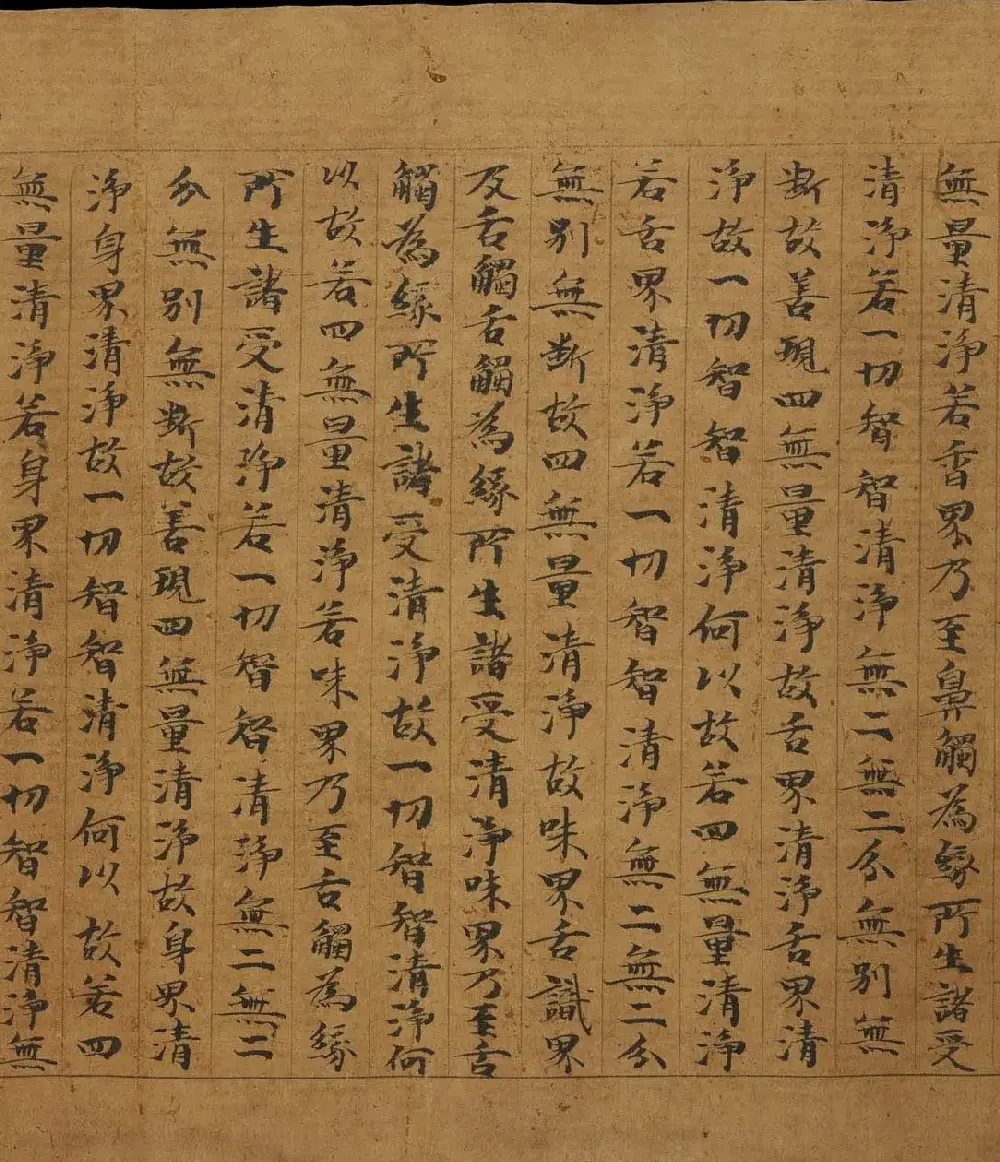 無量清淨若香界乃至鼻觸為緣所生諸受
清淨若一切智智清淨無二無二分無別無
斷故善現四無量清淨故舌界清淨舌界清
淨故一切智智清淨何以故若四無量清淨
若舌界清淨若一切智智清淨無二無二分
無別無斷故四無量清淨故味界舌識界
及舌觸舌觸為緣所生諸受清淨味界乃至舌
觸為緣所生諸受清淨故一切智智清淨何
以故若四無量清淨若味界乃至舌觸為緣
所生諸受清淨若一切智智清淨無二無二
分無別無斷故善現四無量清淨故身界清
淨身界清淨故一切智智清淨何以故若四
無量清淨若身界清淨若一切智智清淨無